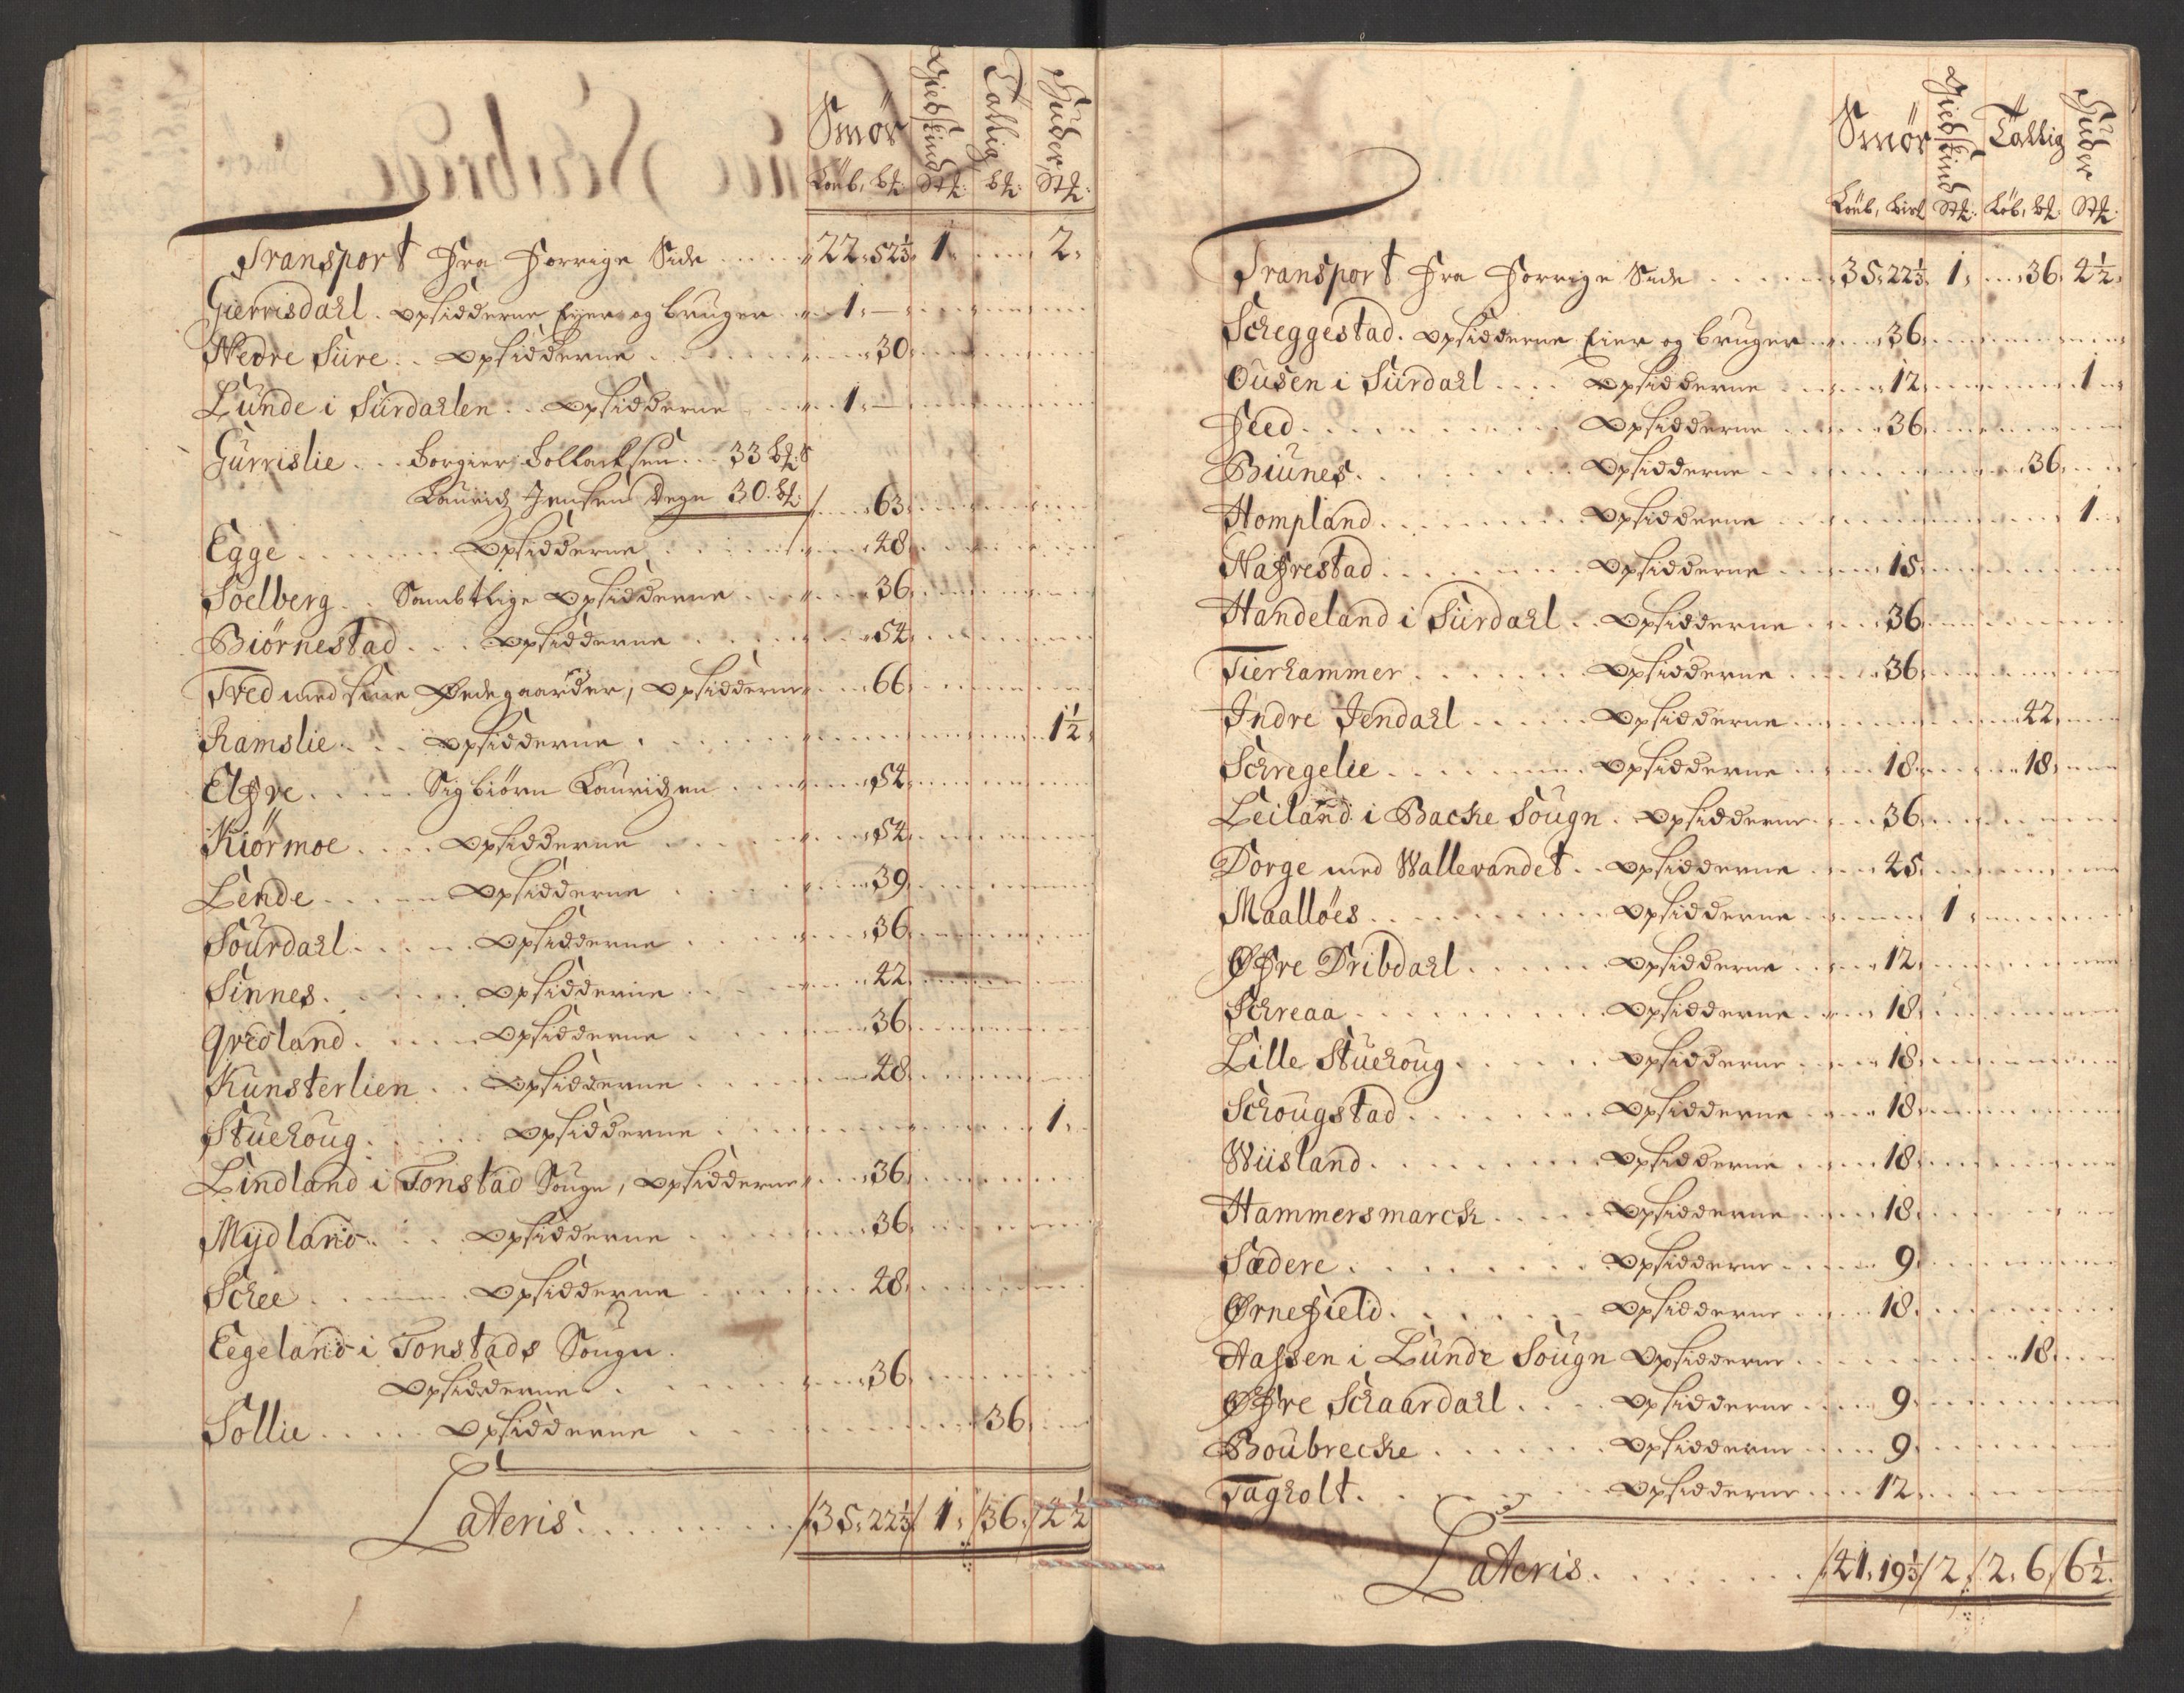 Smør Giedskind Tallig Huder
Løub, bl: Stk: bl: Stk:
Transport fra forrige Side 22. 52⅓. 1. 2.
Gierrisdahl. opsidderne Eyer og bruger 1.
Nedre Siire opsidderne 30.
Lunde i Siirdahlen opsidderne 1.
Gurrislie Torgier Tollachsen 33 bl:
Lauridz Jensen Degn 30. bl: 63.
Egge opsidderne 48.
Soelberg Sambtlige opsidderne 36.
Biørnestad opsidderne 54.
Tved med sine Ødegaarder, opsidderne 66.
Ramslie opsidderne 1½.
Elfve Sigbiørn Lauridzen 54.
Kiørmoe opsidderne 54.
Lende opsidderne 39.
Sourdahl opsidderne 36.
Sinnes opsidderne 42.
Qvedland opsidderne 36.
Kunsterlien opsidderne 48.
Stuehoug opsidderne 1.
Lindland i Tonstad Sougn, opsidderne 36.
Mydland opsidderne 36.
Schee opsidderne 48.
Eegeland i Tonstads Sougn.
opsidderne 36.
Sollie opsidderne 36.
Lateris 35. 22⅓ 1. 36. 4½
Smør Giedskind Tallig Huder
Løub, Stk: Løb, bl: Stk:
Transport fra forrige Side 35. 22⅓. 1. 36. 4½.
Scheggestad. opsidderne Eier og bruger 36.
Ousen i Siirdahl opsidderne 12. 1.
Feed opsidderne 36.
Biunes opsidderne 36.
Hompland opsidderne 1.
Hafrestad opsidderne 15.
Handeland i Siirdahl opsidderne 36.
Tierhammer opsidderne 36.
Indre Jendahl opsidderne 42.
Schregelie opsidderne 18. 18.
Leiland i Backe Sougn. opsidderne 36.
Dorge med Wallevandet opsidderne 45.
Maalløes opsidderne 1.
Øfre Dribdahl opsidderne 12.
Schreaa opsidderne 18.
Lille Stuehoug opsidderne 18.
Schougstad opsidderne 18.
Wiisland opsidderne 18.
Hammersmarck opsidderne 18.
Sædere opsidderne 9.
Ørnefield opsidderne 18.
Hafsen i Lunde Sougn opsidderne 18.
Øfre Schaardahl opsidderne 9.
Boubrecke opsidderne 9.
Tagholt opsidderne 12.
Lateris 41. 19⅓ 2. 2. 6. 6½.